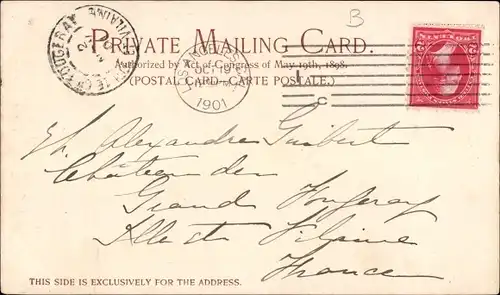 B
PRIVATE MAILING CARD.
Authorized by Act of Congress of May 19th, 1898.
(POSTAL CARD—CARTE POSTALE.)
FOUGERAY
VILAINE
LOS ANGELES
OCT 19
1901
C
Alexandre Guibert
Château de
Grand Fougeray
Ille et Vilaine
France
THIS SIDE IS EXCLUSIVELY FOR THE ADDRESS.